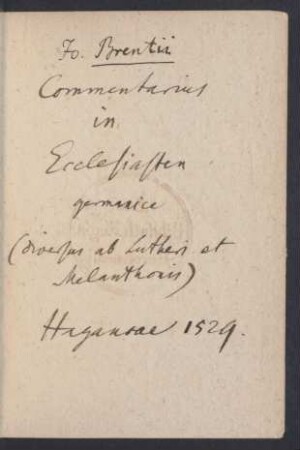 Jo. Brentii
Commentarius
in
Ecclesiasten
germanice
(diversus ab Lutheri et
Melanthonis)
Haganoae 1529.